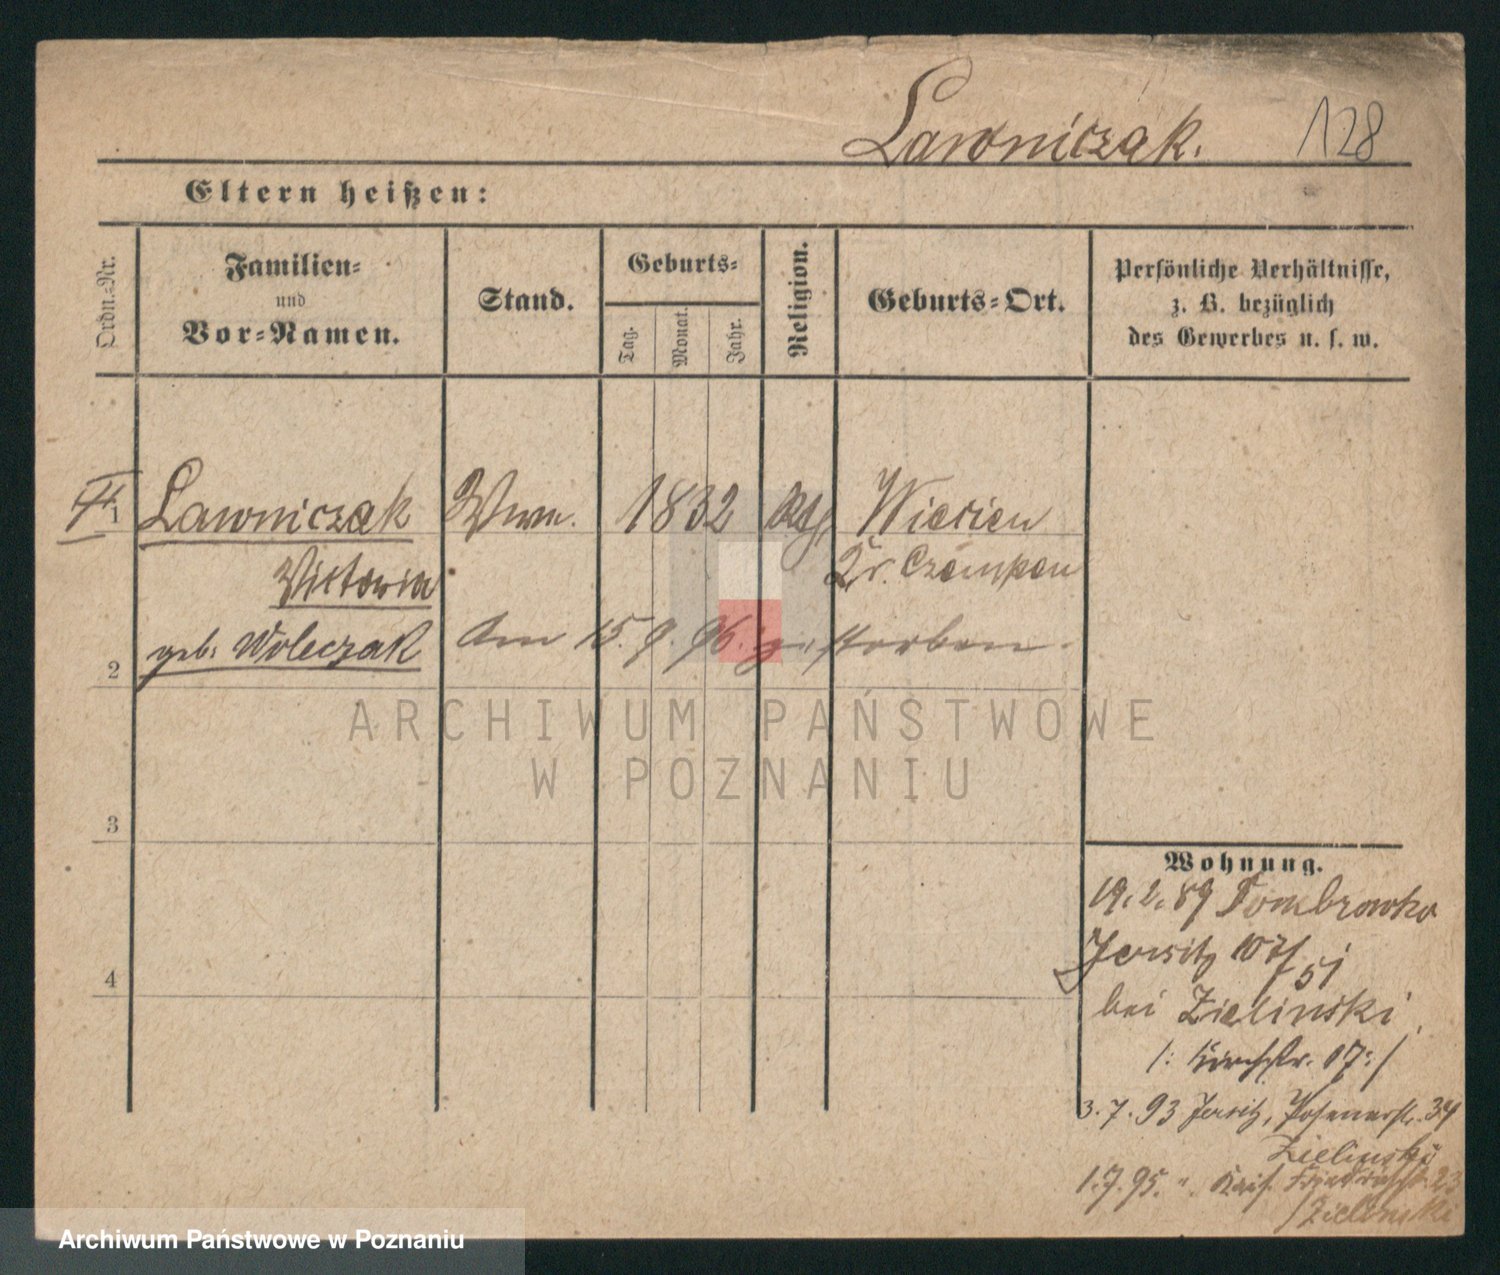 Lawniczak. 128
Eltern heißen:
Ordn.-Nr.
Familien-
und
Vor-Namen.
Stand.
Geburts-
Tag.
Monat.
Jahr.
Religion.
Geburts-Ort.
Persönliche Verhältnisse,
z. B. bezüglich
des Gewerbes u. s. w.
1 Lawniczak Wwe. 1832 ktl. Wierien
Victoria Kr. Czempen
geb. Woleczak Am 15. 9. 96. gestorben.
2
ARCHIWUM PAŃSTWOWE
W POZNANIU
3
4
Wohnung.
19. 2. 89 Dombrowka
Jersitz 107/51
bei Zielinski
/: Kirchstr. 17 :/
3. 7. 93 Jersitz, Posenerstr. 34
Zielinski
1. 7. 95. " Kais. Friedrichstr. 23
/Zielinski
Archiwum Państwowe w Poznaniu